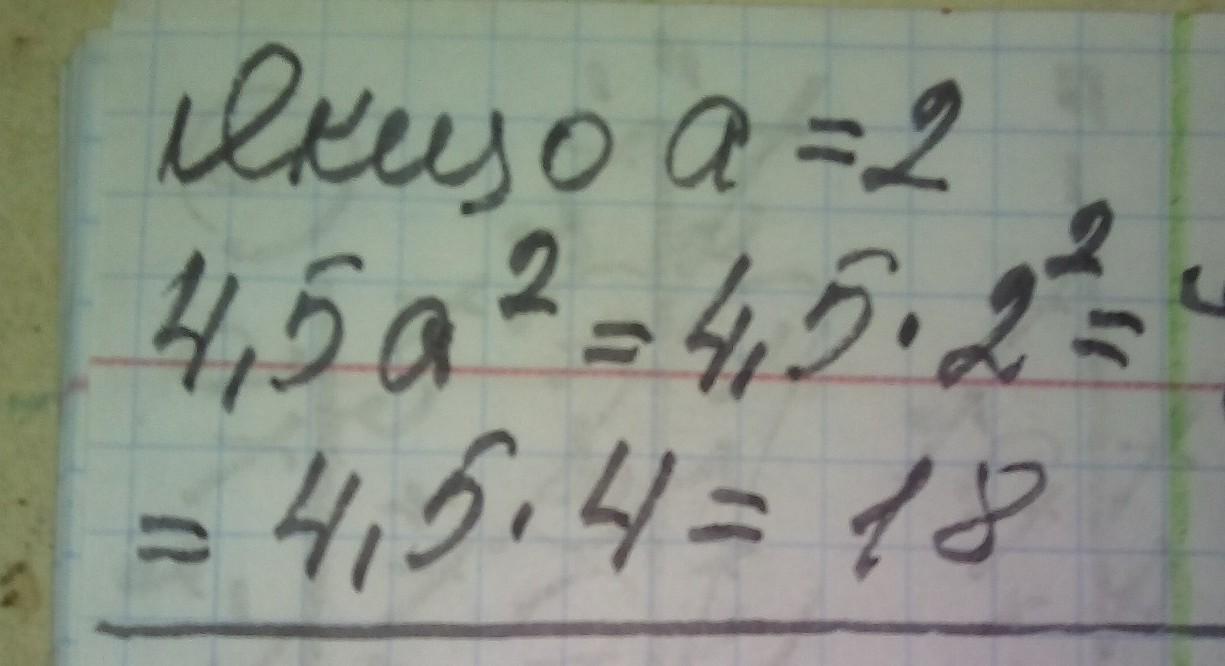 Якщо a = 2
4,5a² = 4,5 · 2² =
= 4,5 · 4 = 18